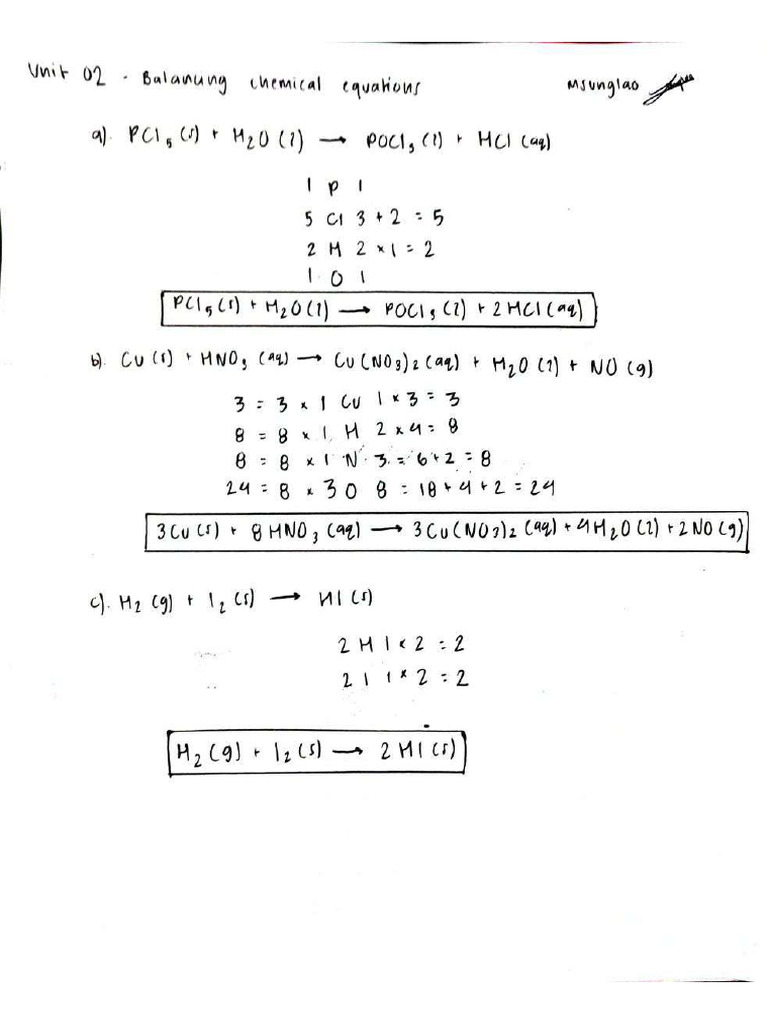 Unit 02 - Balancing chemical equations msunglao
a). PCl5 (s) + H2O (l) → POCl3 (l) + HCl (aq)
1 P 1
5 Cl 3 + 2 = 5
2 H 2 × 1 = 2
1 O 1
PCl5 (s) + H2O (l) → POCl3 (l) + 2 HCl (aq)
b). Cu (s) + HNO3 (aq) → Cu(NO3)2 (aq) + H2O (l) + NO (g)
3 = 3 × 1 Cu 1 × 3 = 3
8 = 8 × 1 H 2 × 4 = 8
8 = 8 × 1 N 3 = 6 + 2 = 8
24 = 8 × 3 O 8 = 18 + 4 + 2 = 24
3 Cu (s) + 8 HNO3 (aq) → 3 Cu(NO3)2 (aq) + 4 H2O (l) + 2 NO (g)
c). H2 (g) + I2 (s) → HI (s)
2 H 1 × 2 = 2
2 I 1 × 2 = 2
H2 (g) + I2 (s) → 2 HI (s)